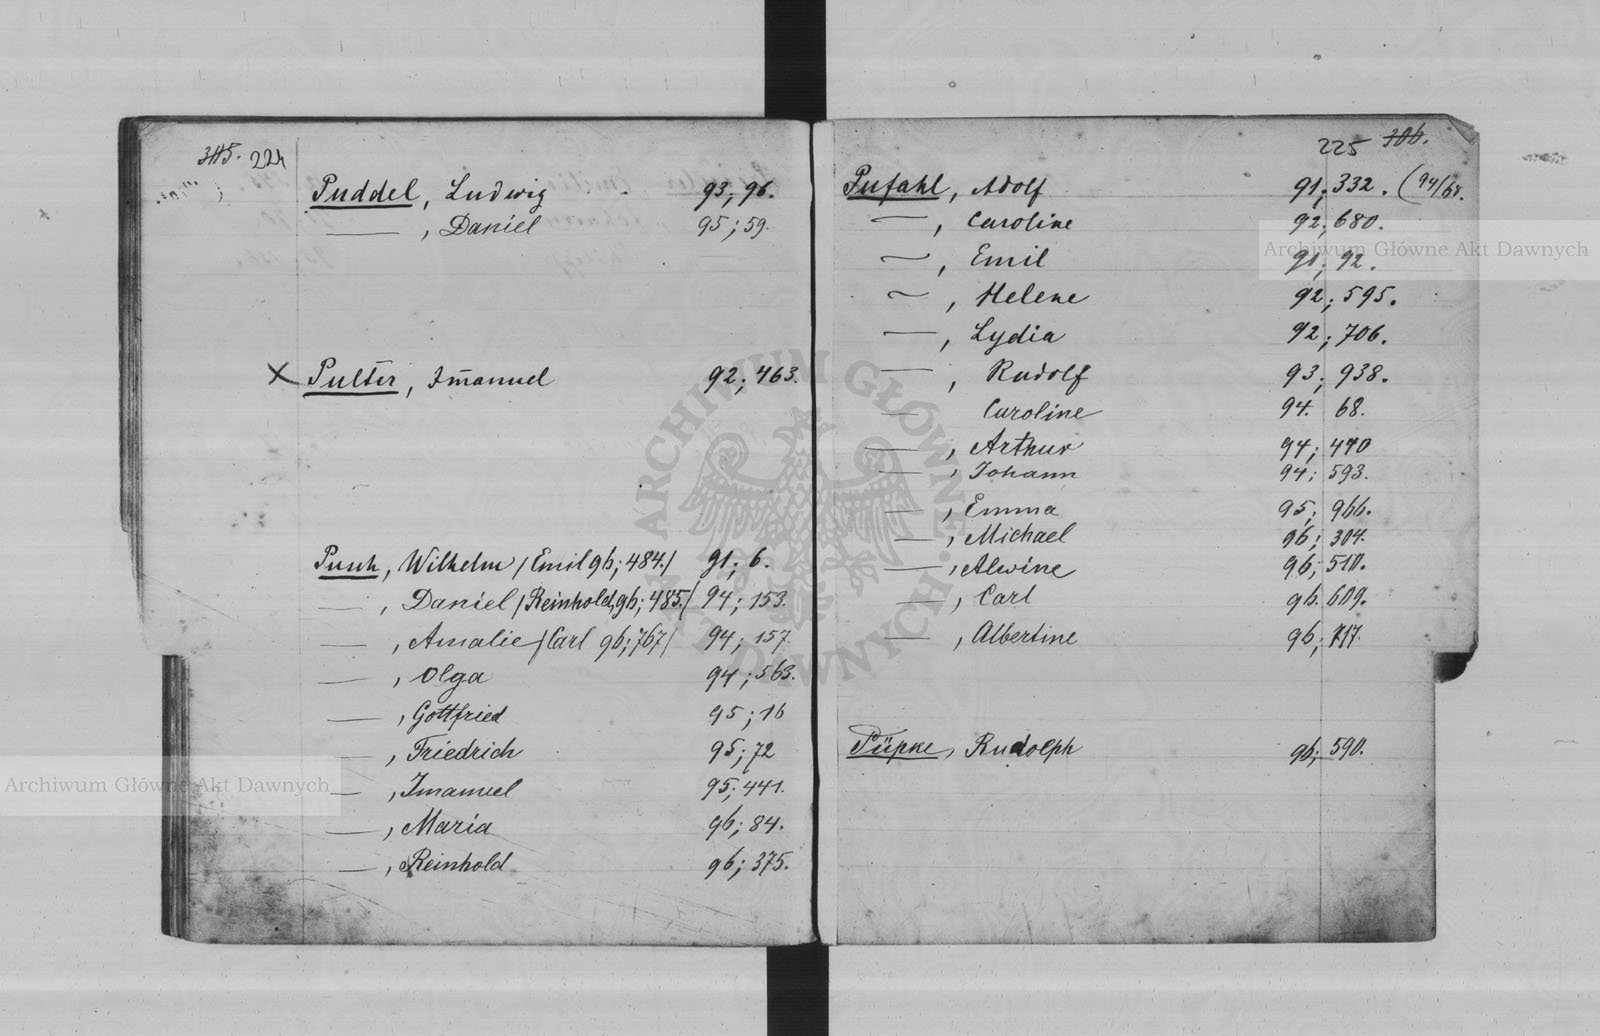 305. 224
Puddel, Ludwig 93; 96.
— , Daniel 95; 59.
X Pulter, Im̄anuel 92; 463.
Pusch, Wilhelm /Emil 96; 484./ 91; 6.
— , Daniel /Reinhold, 96; 485./ 94; 153.
— , Amalie /Carl 96; 767/ 94; 157.
— , Olga 94; 563.
— , Gottfried 95; 16
— , Friedrich 95; 72
— , Imanuel 95; 441.
— , Maria 96; 84.
— , Reinhold 96; 375.
225 306.
Pufahl, Adolf 91; 332. (94/68.
— , Caroline 92; 680.
— , Emil 91; 92.
— , Helene 92; 595.
— , Lydia 92; 706.
— , Rudolf 93; 938.
— Caroline 94. 68.
— , Arthur 94; 470
— , Johann 94; 593.
— , Emma 95; 966.
— , Michael 96; 304.
— , Alwine 96; 510.
— , Carl 96. 609.
— , Albertine 96; 717.
Püpke, Rudolph 96; 590.
Archiwum Główne Akt Dawnych
Archiwum Główne Akt Dawnych
ARCHIWUM GŁÓWNE AKT DAWNYCH